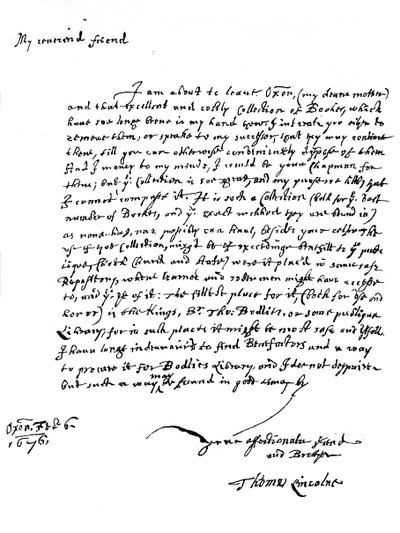 My reverend friend
I am about to leave Oxon, (my deare mother)
and that excellent and costly Collection of Bookes, which
have soe longe beene in my hand; now I intreate you either to
remove them, or speake to my successor, that they may continue
there, till you can otherwise conveniently dispose of them
Had I money to my minde, I would be your Chapman for
them; but yͤ Collection is soe great, and my purse soe little, that
I cannot compasse it. It is such a Collection (both for yͤ vast
number of Bookes, and yͤ exact method they are bound in)
as none has, nor possibly can have, beside your selfe. The
use of that Collection, might be of exceedinge benefitt to yͤ pub-
lique, (both Church and state) were it plac'd in some safe
Repository, where learned and sober men might have accesse
to, and yͤ use of it: The fittest place for it, (both for use and
honor) is the Kings, Sʳ. Tho: Bodlies, or some publique
Library; for in such places it might be most safe and usefull.
I have longe indeavoured to find Benefactors and a way
to procure it for Bodlies Library, and I doe not despaire
but such a way may be found in good time by
Oxon, Feb. 6.
1676.
your affectionate friend
and Brother
Thomas Lincolne